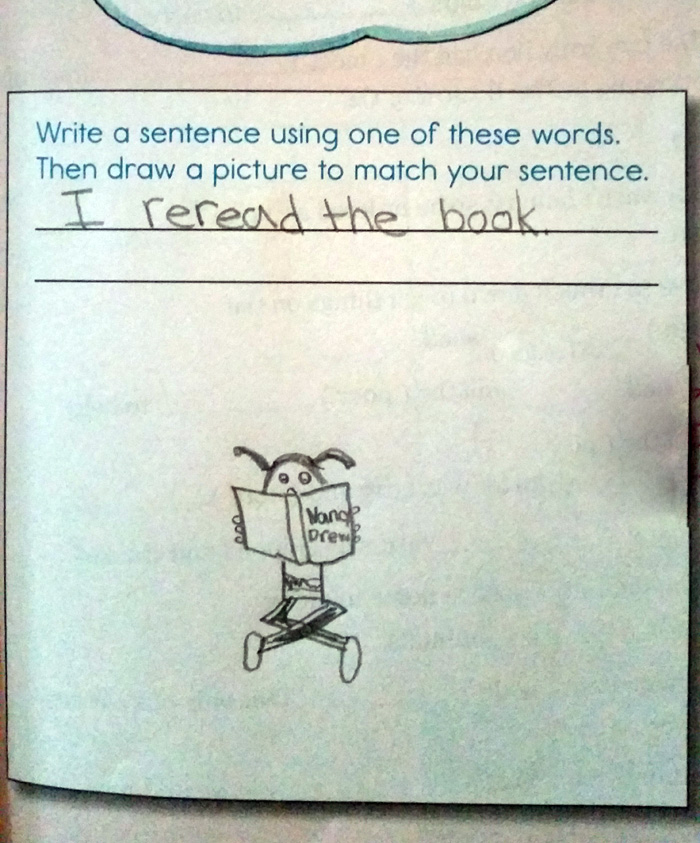 Write a sentence using one of these words.
Then draw a picture to match your sentence.
I reread the book.
Nancy
Drew